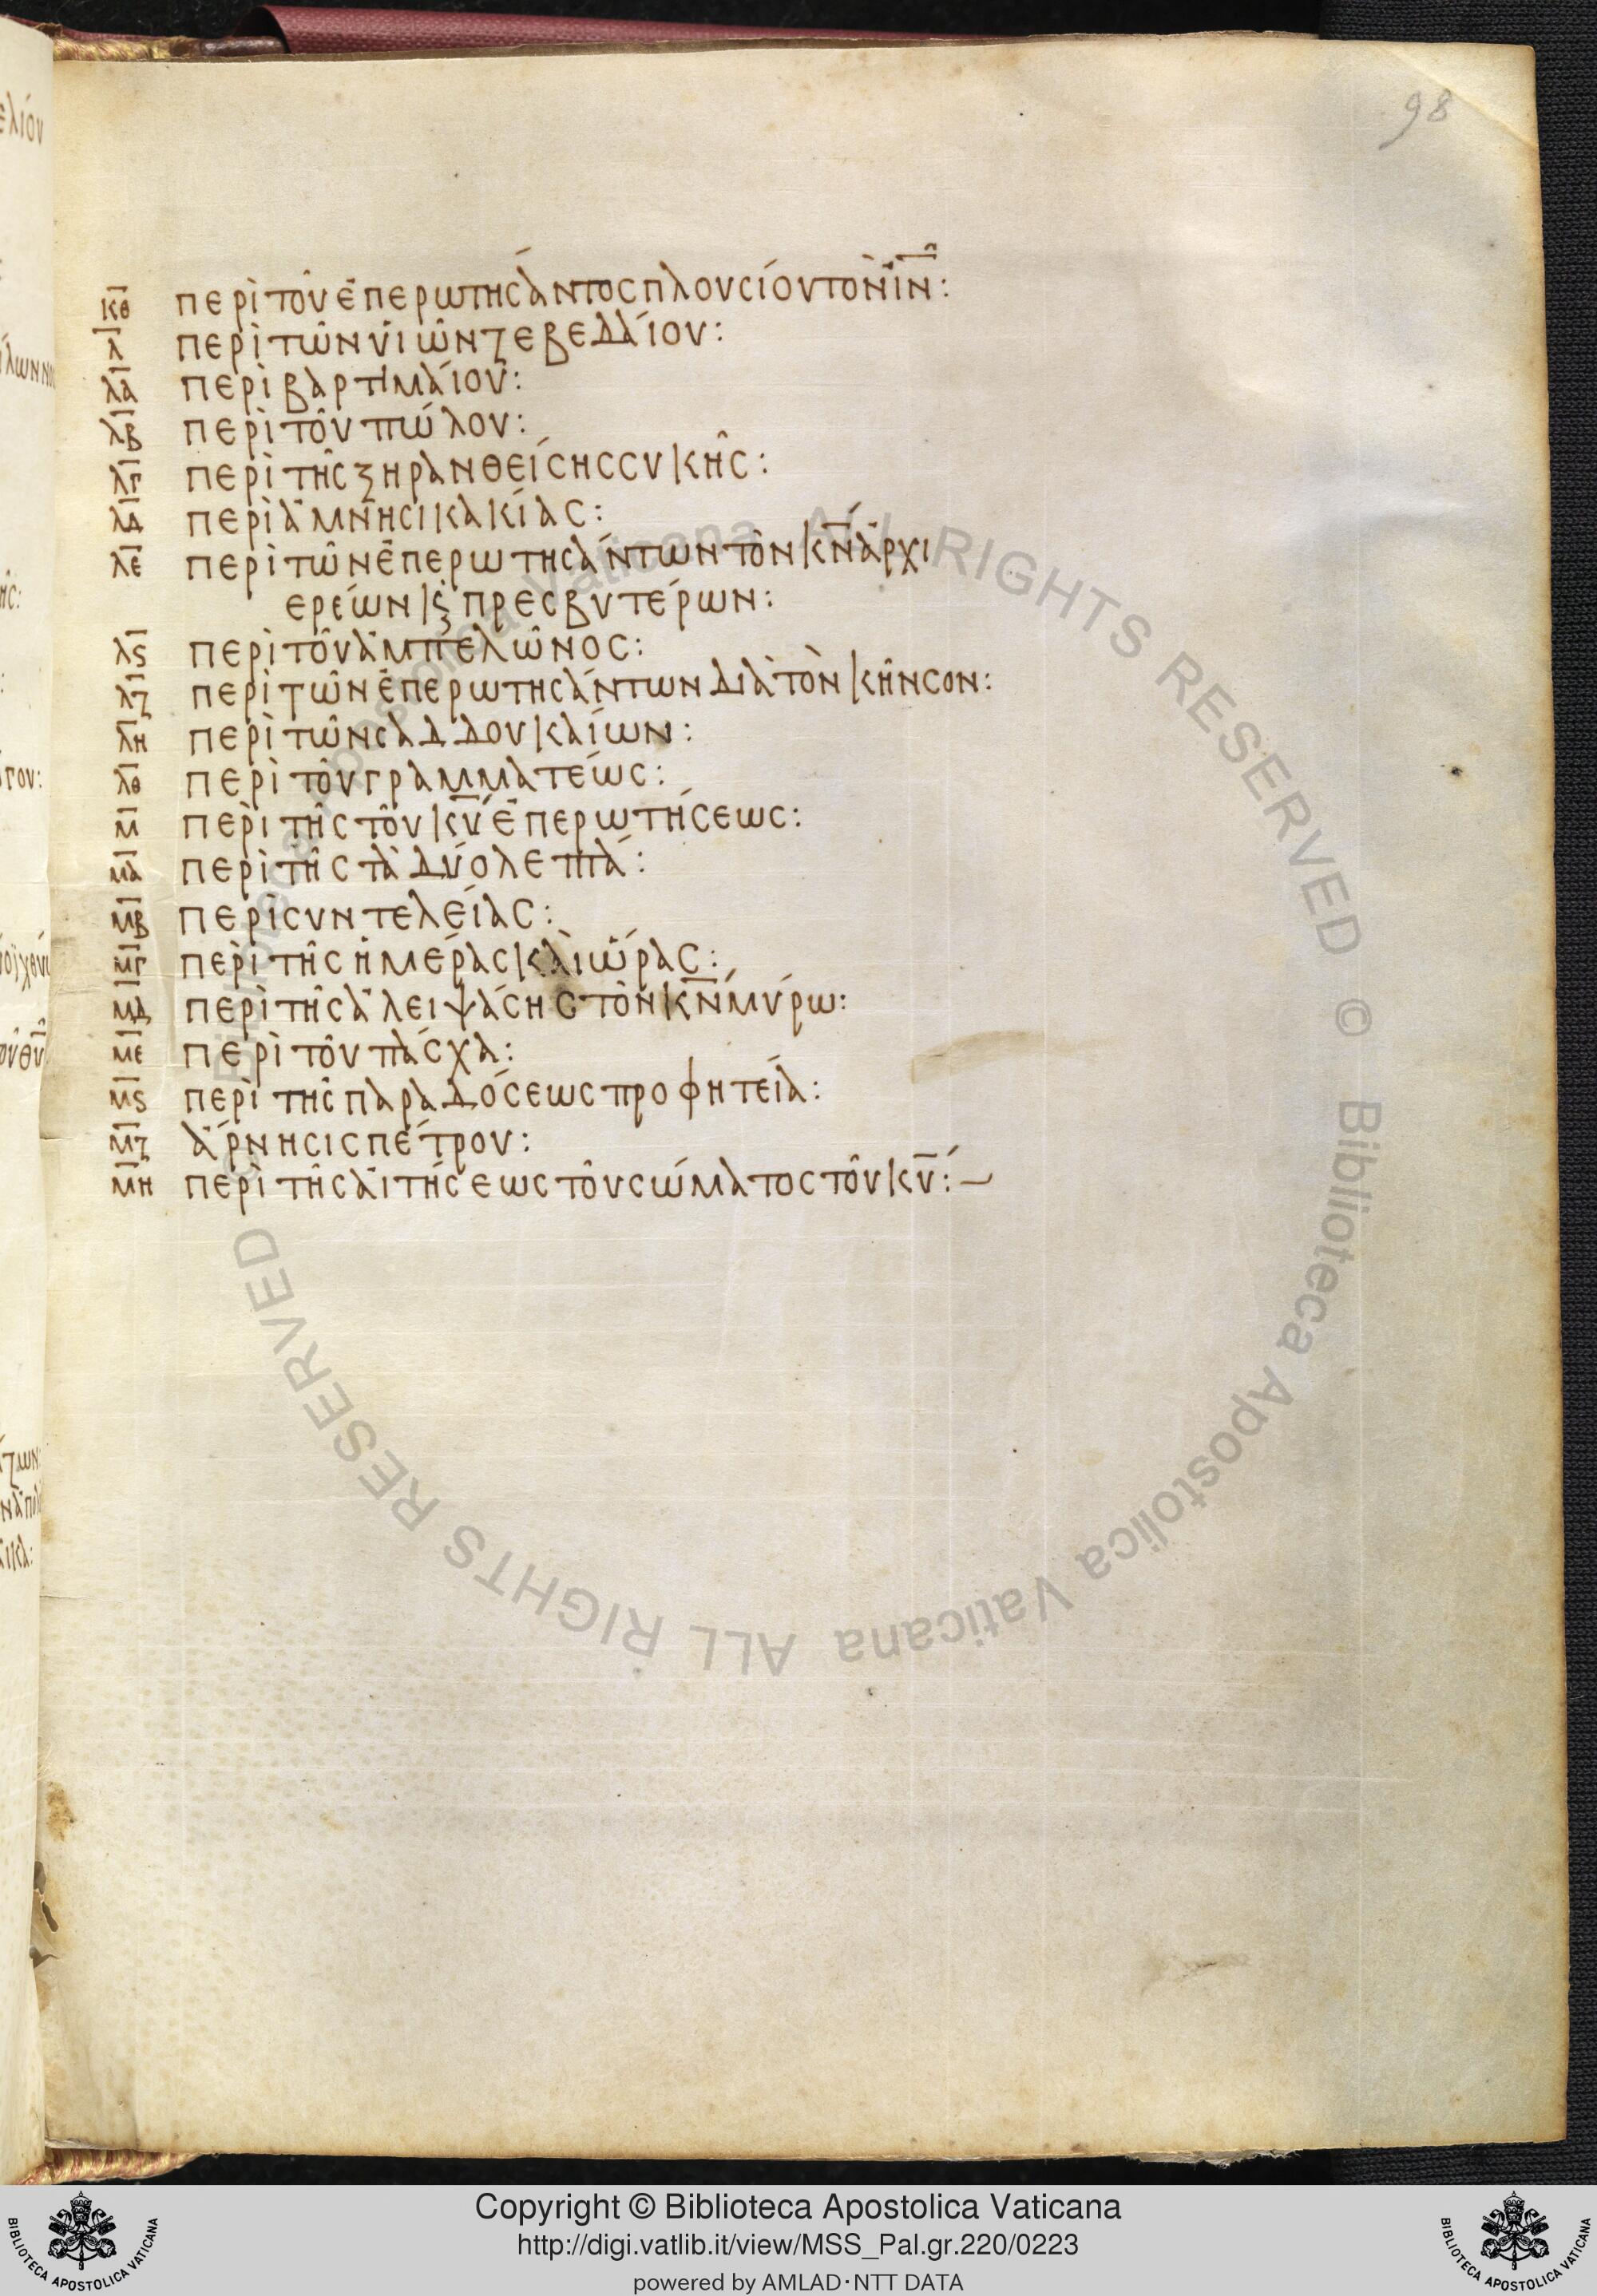 98
κθ περὶ τοῦ ἐπερωτησάντος πλουσίου τὸν ἰν:
λ περὶ τῶν υἱῶν ζεβεδαίου:
λα περὶ βαρτιμαίου:
λβ περὶ τοῦ πώλου:
λγ περὶ τῆς ξηρανθείσης συκῆς:
λδ περὶ ἀμνησικακίας:
λε περὶ τῶν ἐπερωτησάντων τὸν κν ἀρχι
ερέων κς πρεσβυτέρων:
λς περὶ τοῦ ἀμπελῶνος:
λζ περὶ τῶν ἐπερωτησάντων διὰ τὸν κῆνσον:
λη περὶ τῶν σαδδουκαίων:
λθ περὶ τοῦ γραμματέως:
μ περὶ τῆς τοῦ κυ ἐπερωτήσεως:
μα περὶ τῆς τὰ δύο λεπτά:
μβ περὶ συντελείας:
μγ περὶ τῆς ἡμέρας καὶ ὥρας:
μδ περὶ τῆς ἀλειψάσης τὸν κν μύρω:
με περὶ τοῦ πάσχα:
μς περὶ τῆς παραδόσεως προφητεία:
μζ ἄρνησις πέτρου:
μη περὶ τῆς αἰτήσεως τοῦ σώματος τοῦ κυ:
Biblioteca Apostolica Vaticana ALL RIGHTS RESERVED © Biblioteca Apostolica Vaticana ALL RIGHTS RESERVED ©
Copyright © Biblioteca Apostolica Vaticana
http://digi.vatlib.it/view/MSS_Pal.gr.220/0223
powered by AMLAD·NTT DATA
BIBLIOTECA APOSTOLICA VATICANA
BIBLIOTECA APOSTOLICA VATICANA